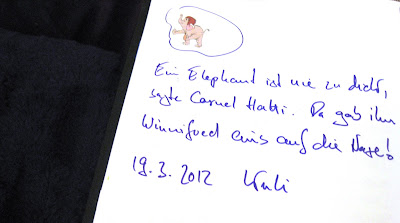 Ein Elephant ist nie zu dick,
sagte Carmel Hatti. Da gab ihm
Winnifred eins auf die Nase!
19.3.2012